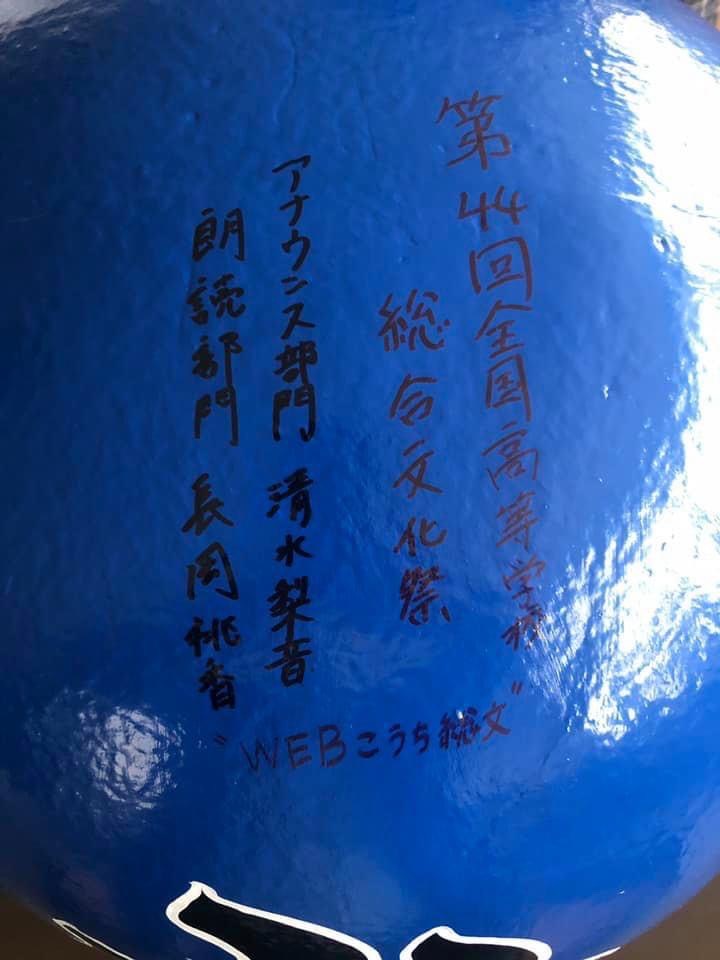 第44回全国高等学校
総合文化祭
アナウンス部門 清水梨音
朗読部門 長岡桃香
"WEBこうち総文"